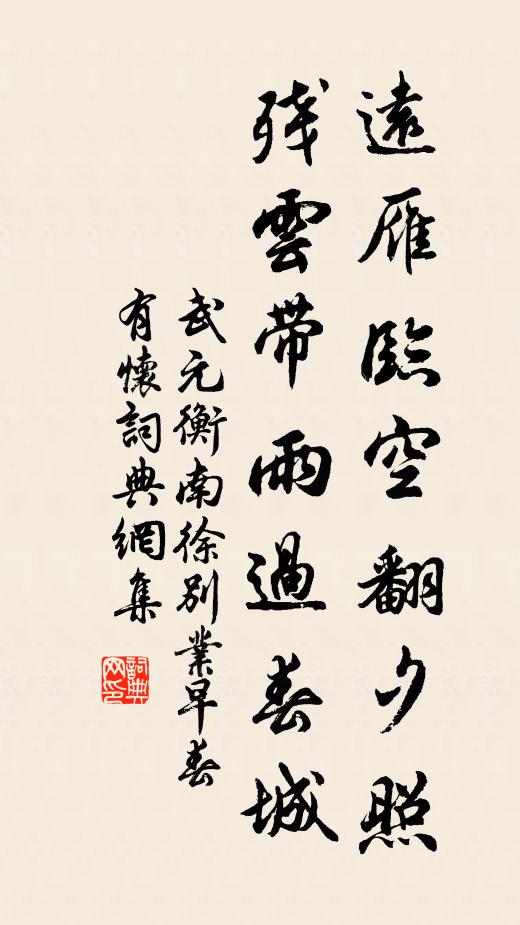 遠雁臨空翻夕照
殘雲帶雨過春城
武元衡南徐別業早春
有懷詞典網集
詞典
网印